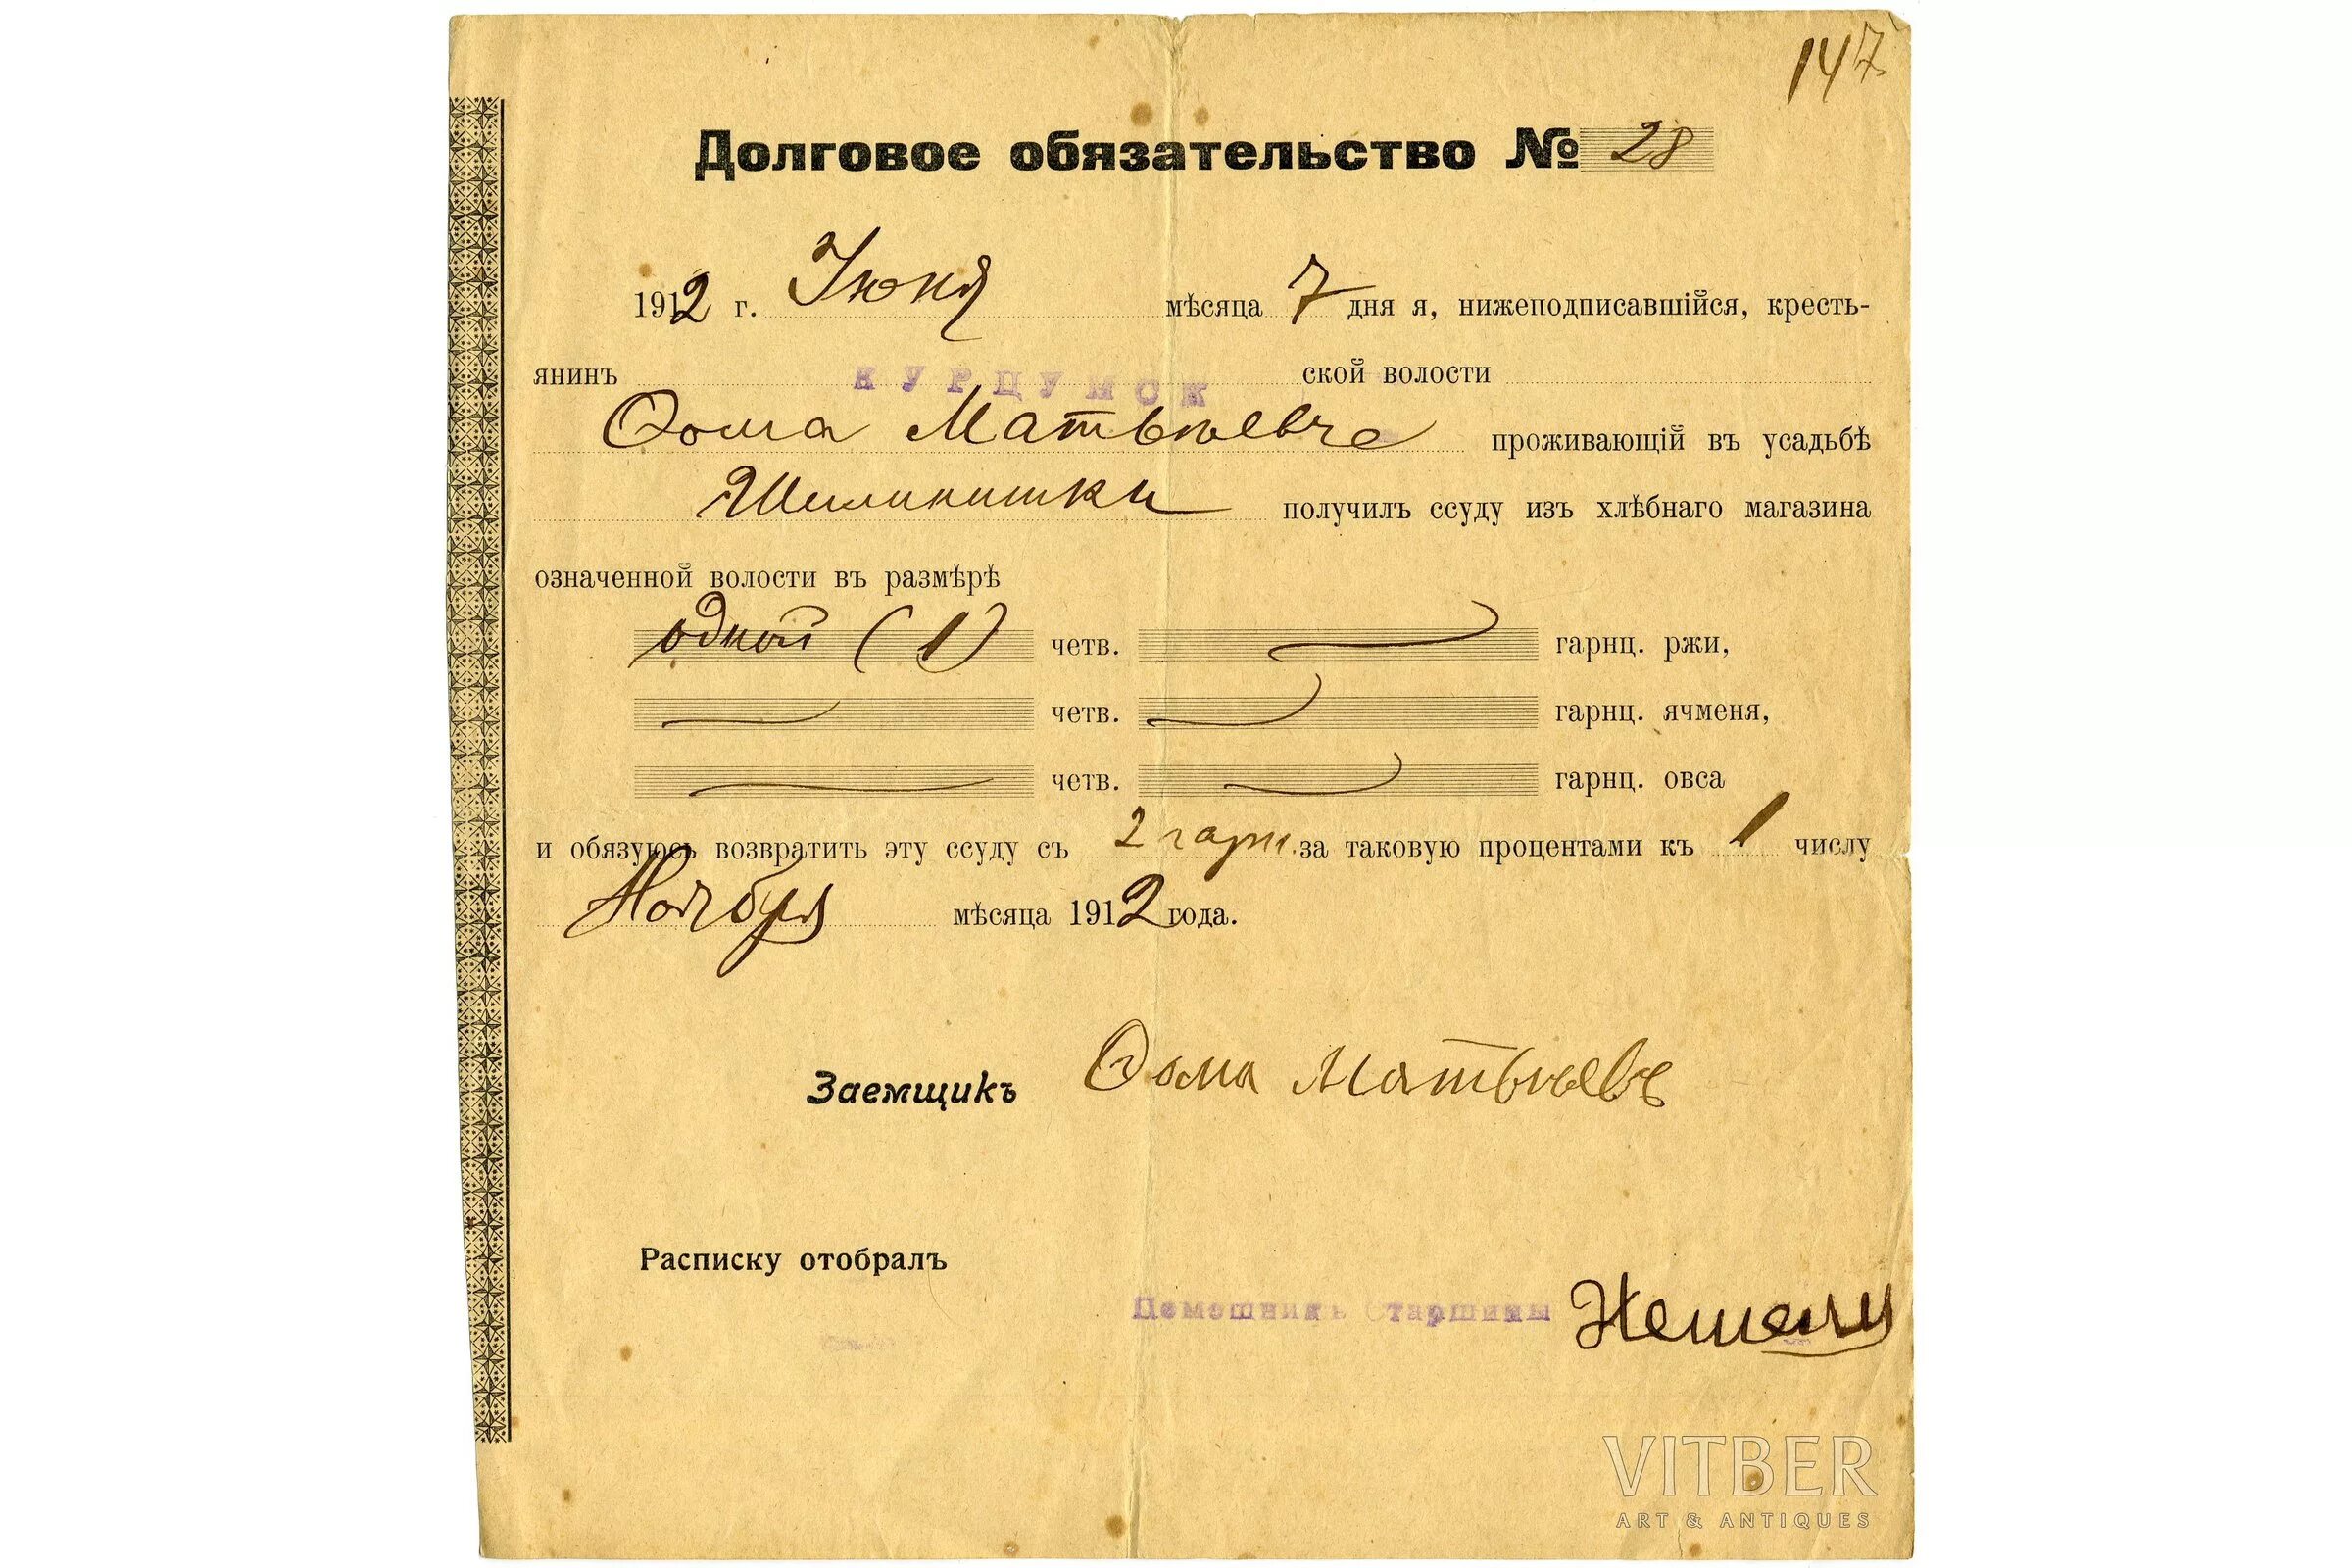 147
Долговое обязательство № 28
1912 г. Іюня мѣсяца 7 дня я, нижеподписавшійся, кресть-
янинъ КУРЦУМСК ской волости
Ѳома Матвѣевъ проживающій въ усадьбѣ
получилъ ссуду изъ хлѣбнаго магазина
означенной волости въ размѣрѣ
одной (1) четв. гарнц. ржи,
четв. гарнц. ячменя,
четв. гарнц. овса
и обязуюсь возвратить эту ссуду съ 2 гарн. за таковую процентами къ 1 числу
Ноября мѣсяца 1912 года.
Заемщикъ Ѳома Матвѣевъ
Расписку отобралъ
Помощникъ Старшины
VITBER
ART & ANTIQUES